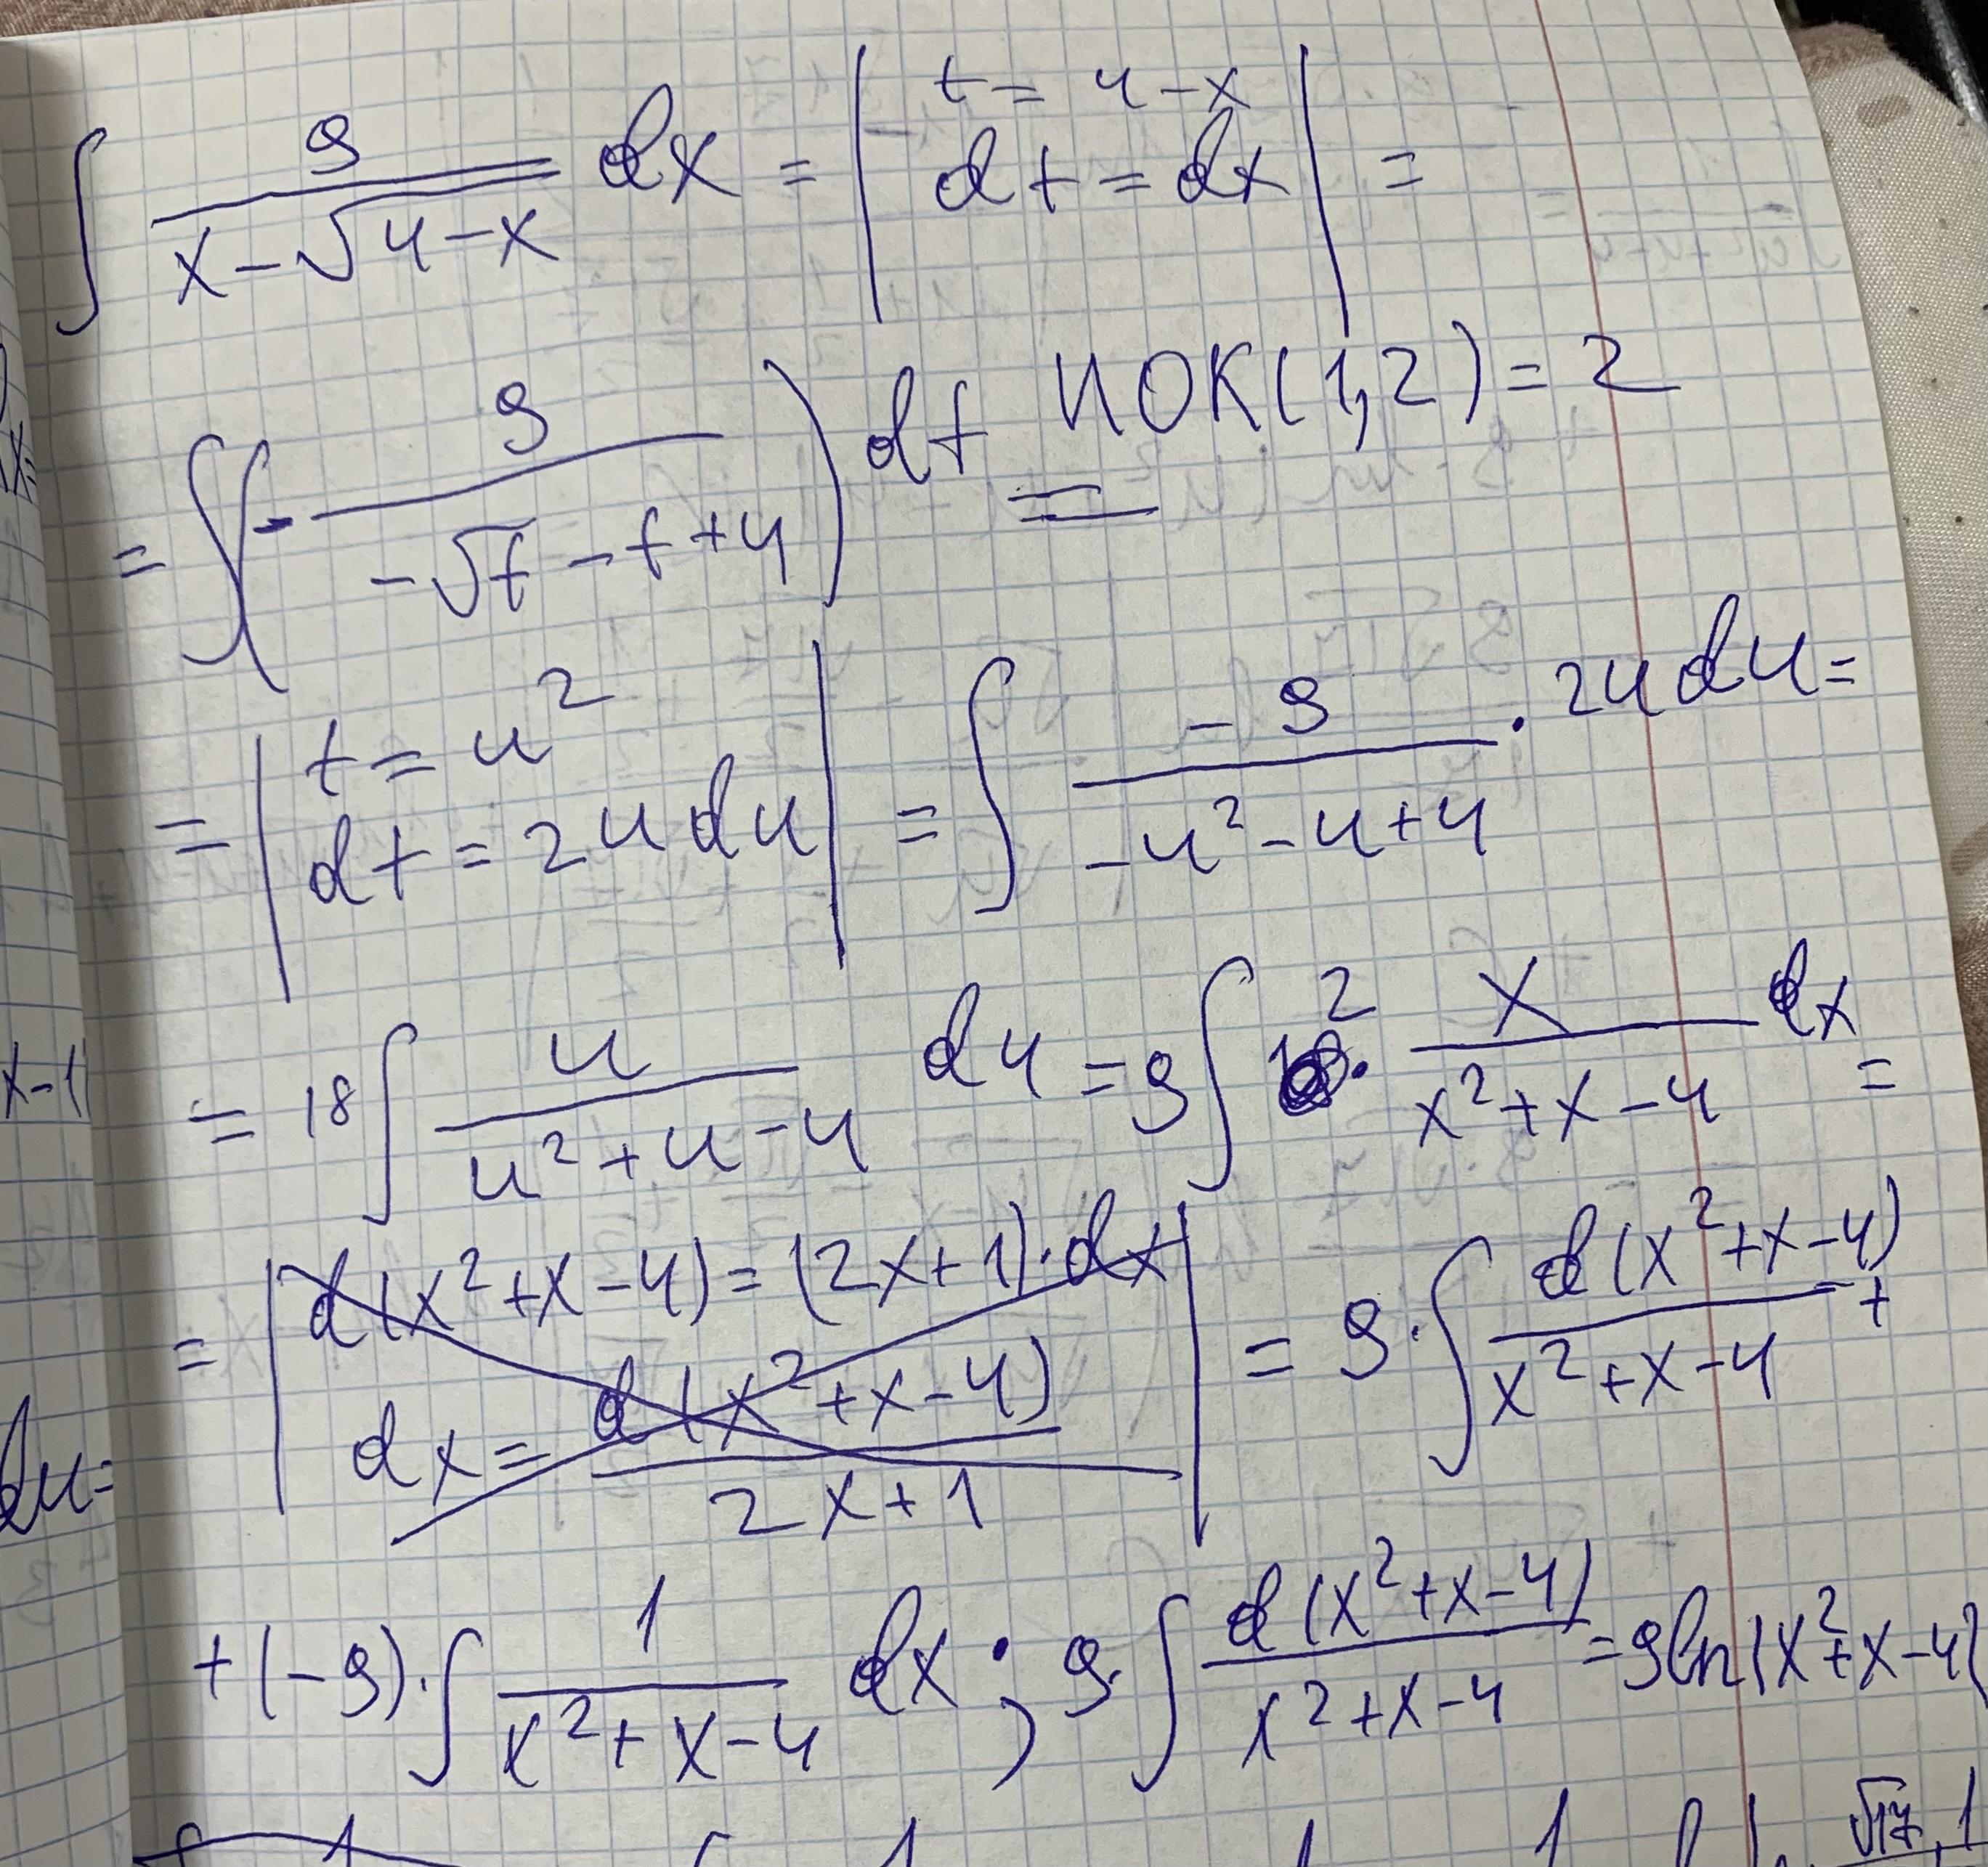 ∫ 9/(x-√(4-x)) dx = | t = 4-x
dt = dx | =
= ∫(- 9/(-√t - t + 4)) dt = НОК(1,2) = 2
= | t = u²
dt = 2u du | = ∫ -9/(-u² - u + 4) · 2u du =
= 18 ∫ u/(u² + u - 4) du = 9 ∫ 2 · x/(x² + x - 4) dx =
= | d(x² + x - 4) = (2x + 1) · dx
dx = d(x² + x - 4)/(2x + 1) | = 9 · ∫ d(x² + x - 4)/(x² + x - 4) +
+ (-9) · ∫ 1/(x² + x - 4) dx ; 9 · ∫ d(x² + x - 4)/(x² + x - 4) = 9ln|x² + x - 4|